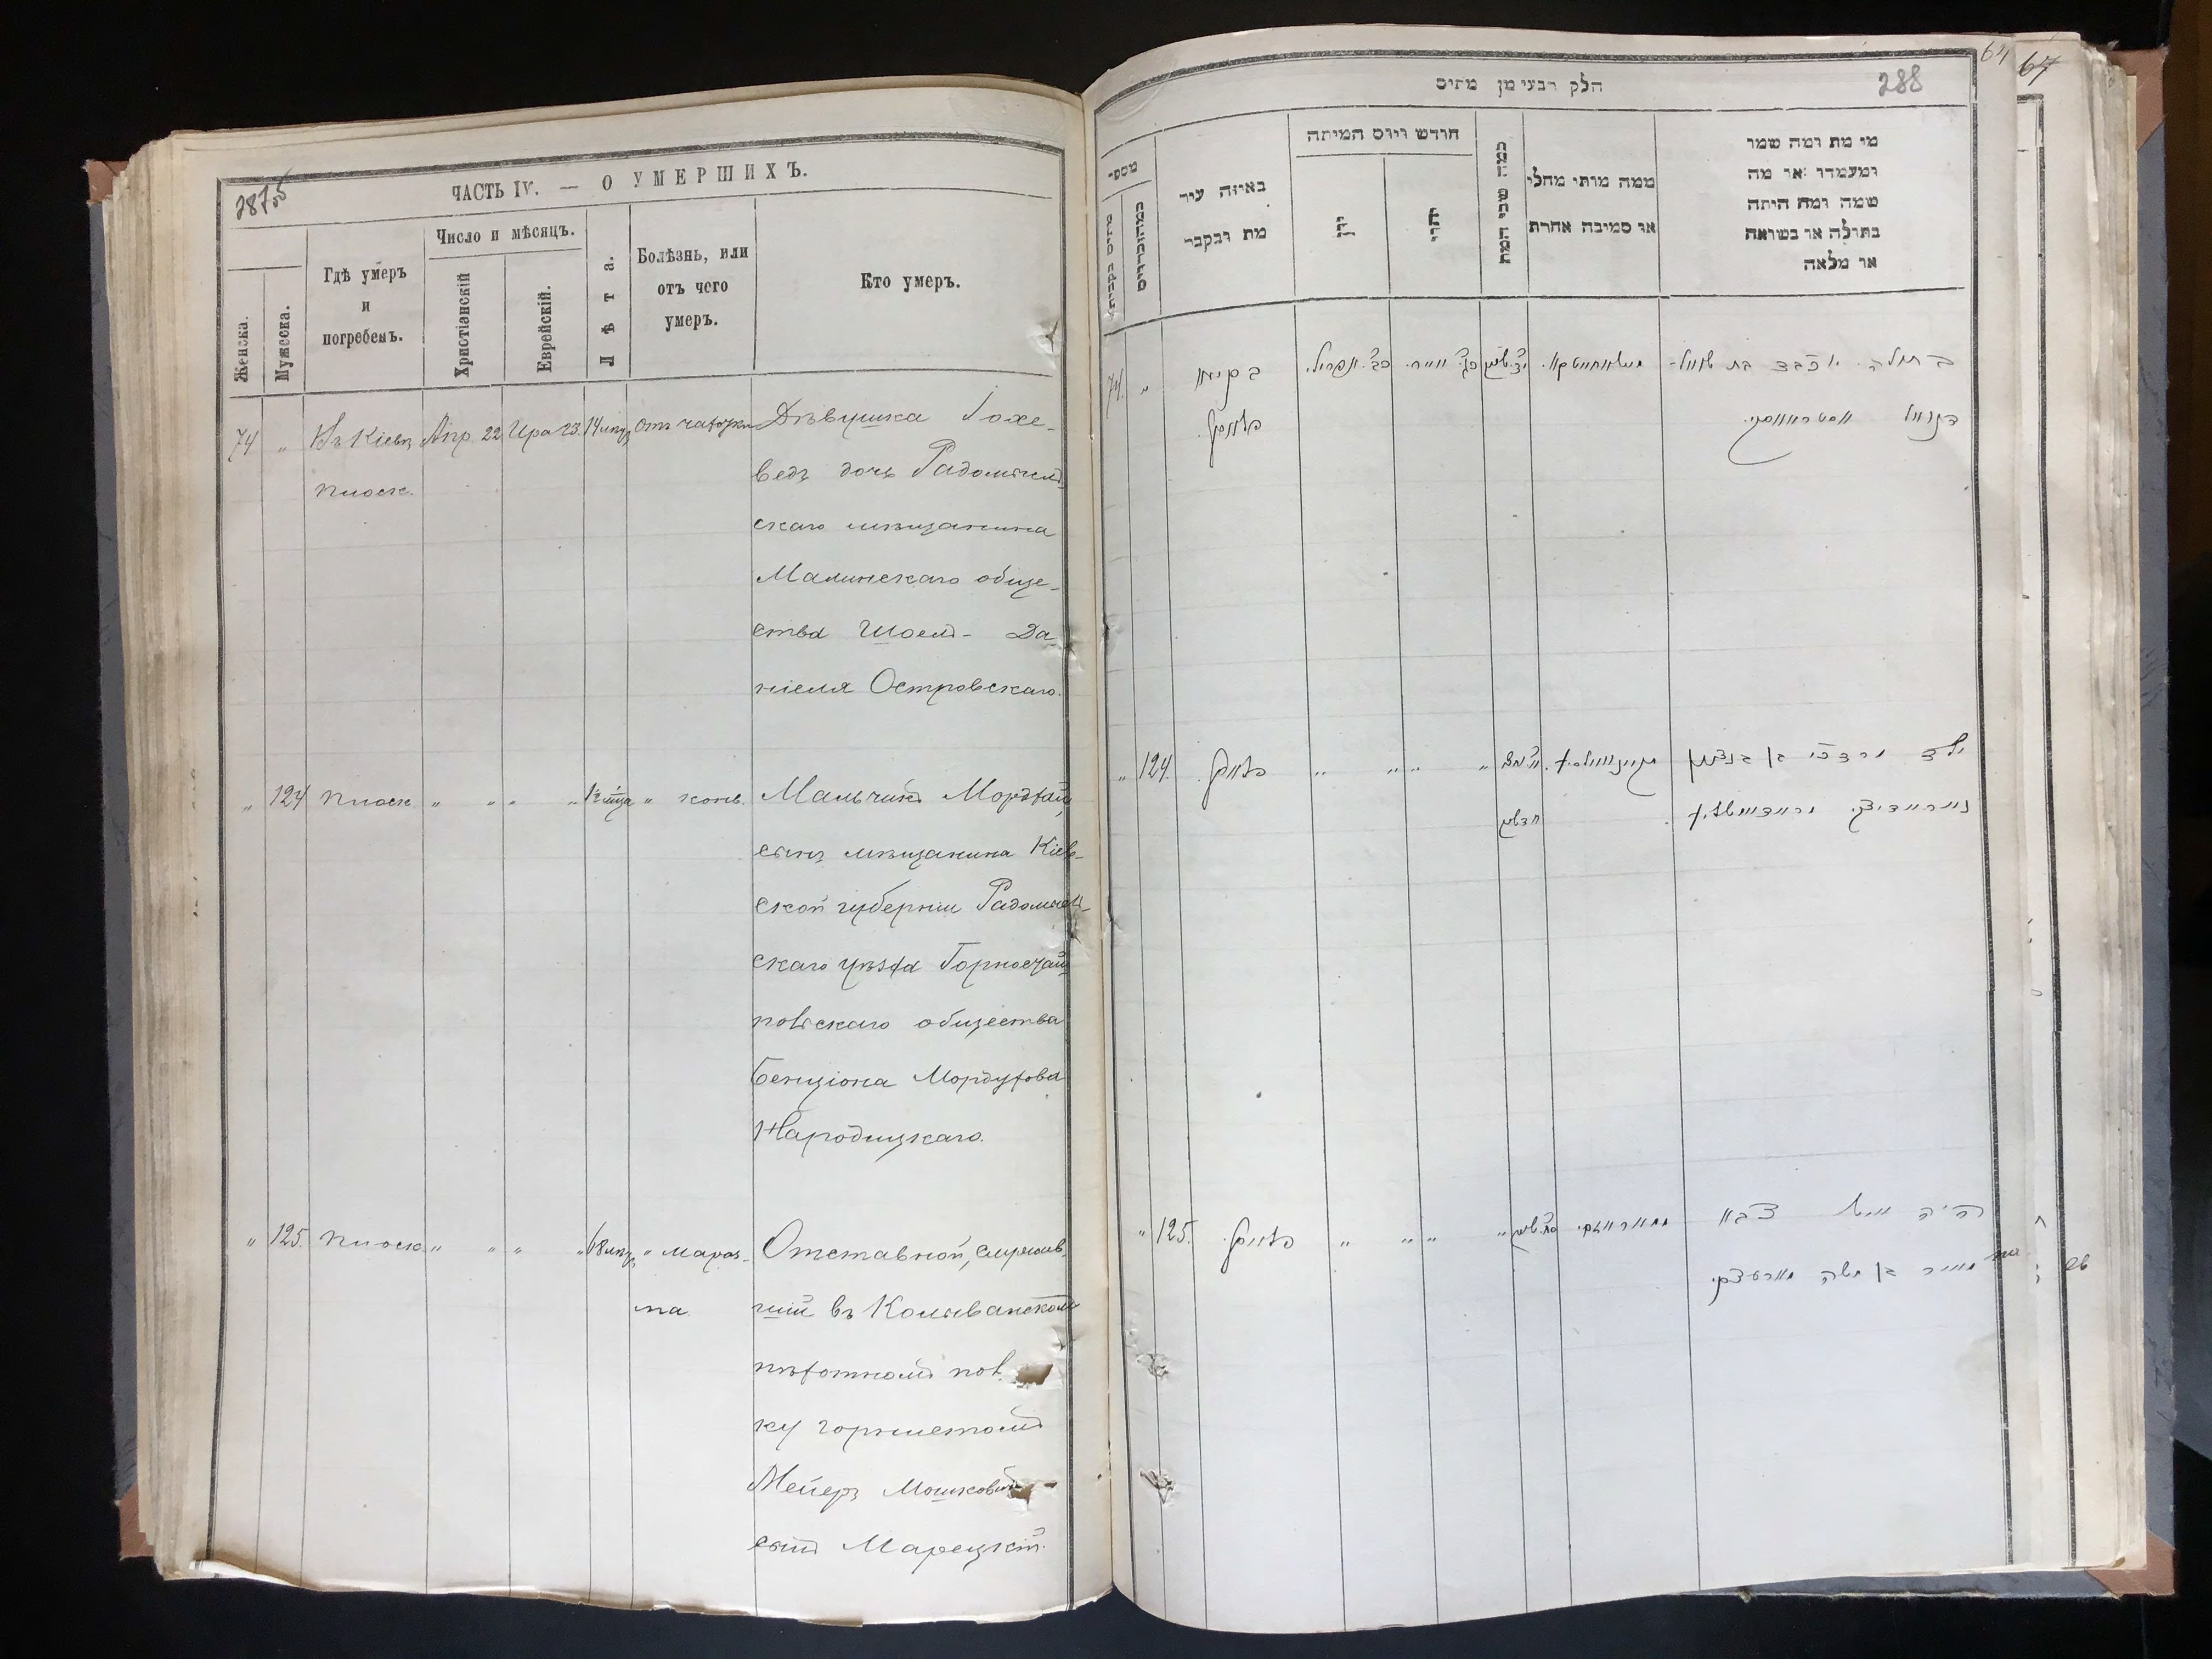 ЧАСТЬ IV. — О УМЕРШИХЪ.
Женска.
Мужеска.
Гдѣ умеръ
и
погребенъ.
Число и мѣсяцъ.
Христіанскій
Еврейскій.
Лѣта.
Болѣзнь, или
отъ чего
умеръ.
Кто умеръ.
74 " Въ Кіевѣ Апр. 22 Ира 23. 14 лѣтъ Отъ чахотки Дѣвушка Іохе-
ведъ дочь Радомысл-
скаго мѣщанина
Малинскаго обще-
ства Шоелъ- Да
ніеля Островскаго.
" 124 " " " " " конв. Мальчикъ Мордхай,
сынъ мѣщанина Кіев-
ской губерніи Радомысл-
скаго уѣзда Горностай-
повскаго общества
Бенціона Мордухова
Народицкаго.
" 125. " " " " 68 лѣтъ " мараз-
ма. Отставной, служив-
шій въ Колыванскомъ
пѣхотномъ пол
ку горнистомъ
Мейеръ Мошковъ
сынъ Марецкій.
288
64 67
חלק רבעי מן מתים
מספר
באיזה עיר
מת ונקבר
חודש ויום המיתה
יון
יהודי
כמה שני המת
ממה מותו מחלי
או סמיבה אחרת
מי מת ומה שמו
ומעמדו או מה
שמה ומה היתה
בתולה או בשואה
או מלאה
74. " בקיעוו בתולה יוכבד בת שאול-
דניאל אסטראווסקי
" 124. " " " " ילד מרדכי בן בנציון
חדשים
" 125. " " " " היה איש צבא
מאיר בן משה מארעצקי